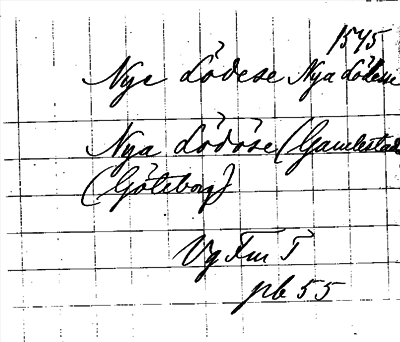 1575
Nye Lödese Nya Lödese
Nya Lödöse (Gamlestad
(Göteborg)
Vg Fm T
pb 55